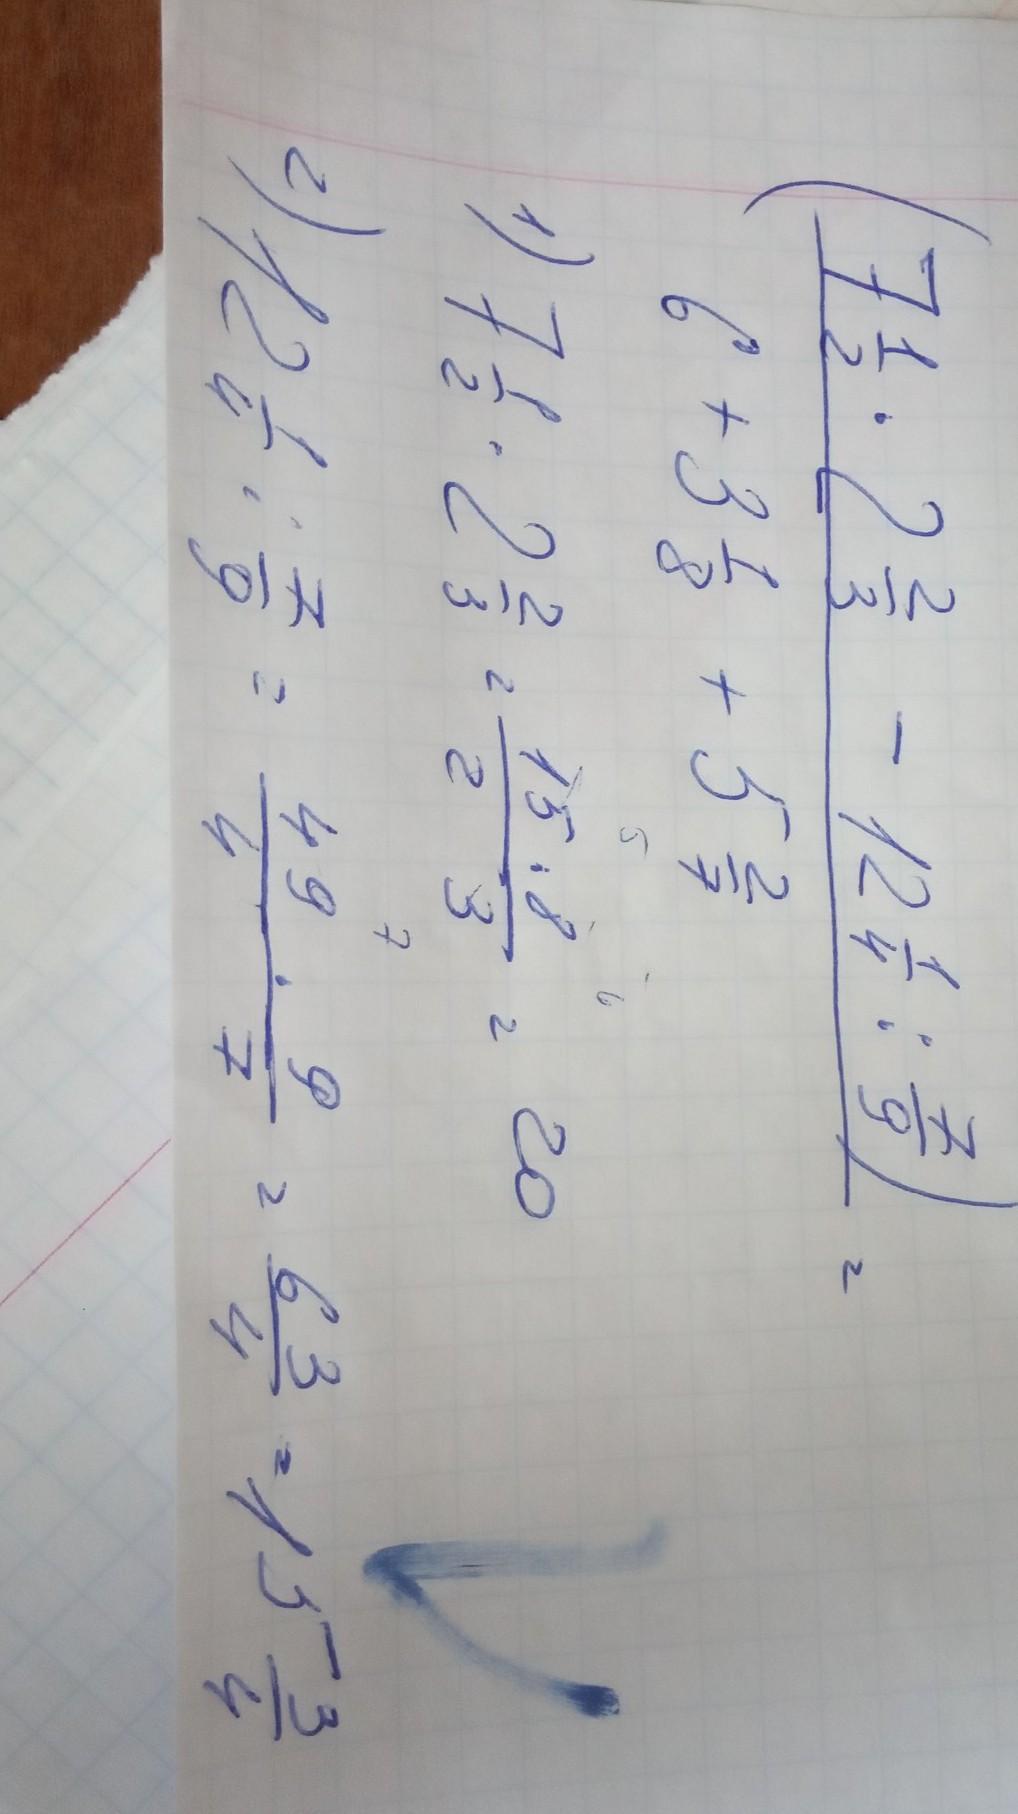 (7 1/2 · 2 2/3 - 12 1/4 : 7/9) =
6 + 3 1/8 + 5 2/7
1) 7 1/2 · 2 2/3 = 15·8/2 3 = 20
2) 12 1/4 : 7/9 = 49/4 · 9/7 = 63/4 = 15 3/4